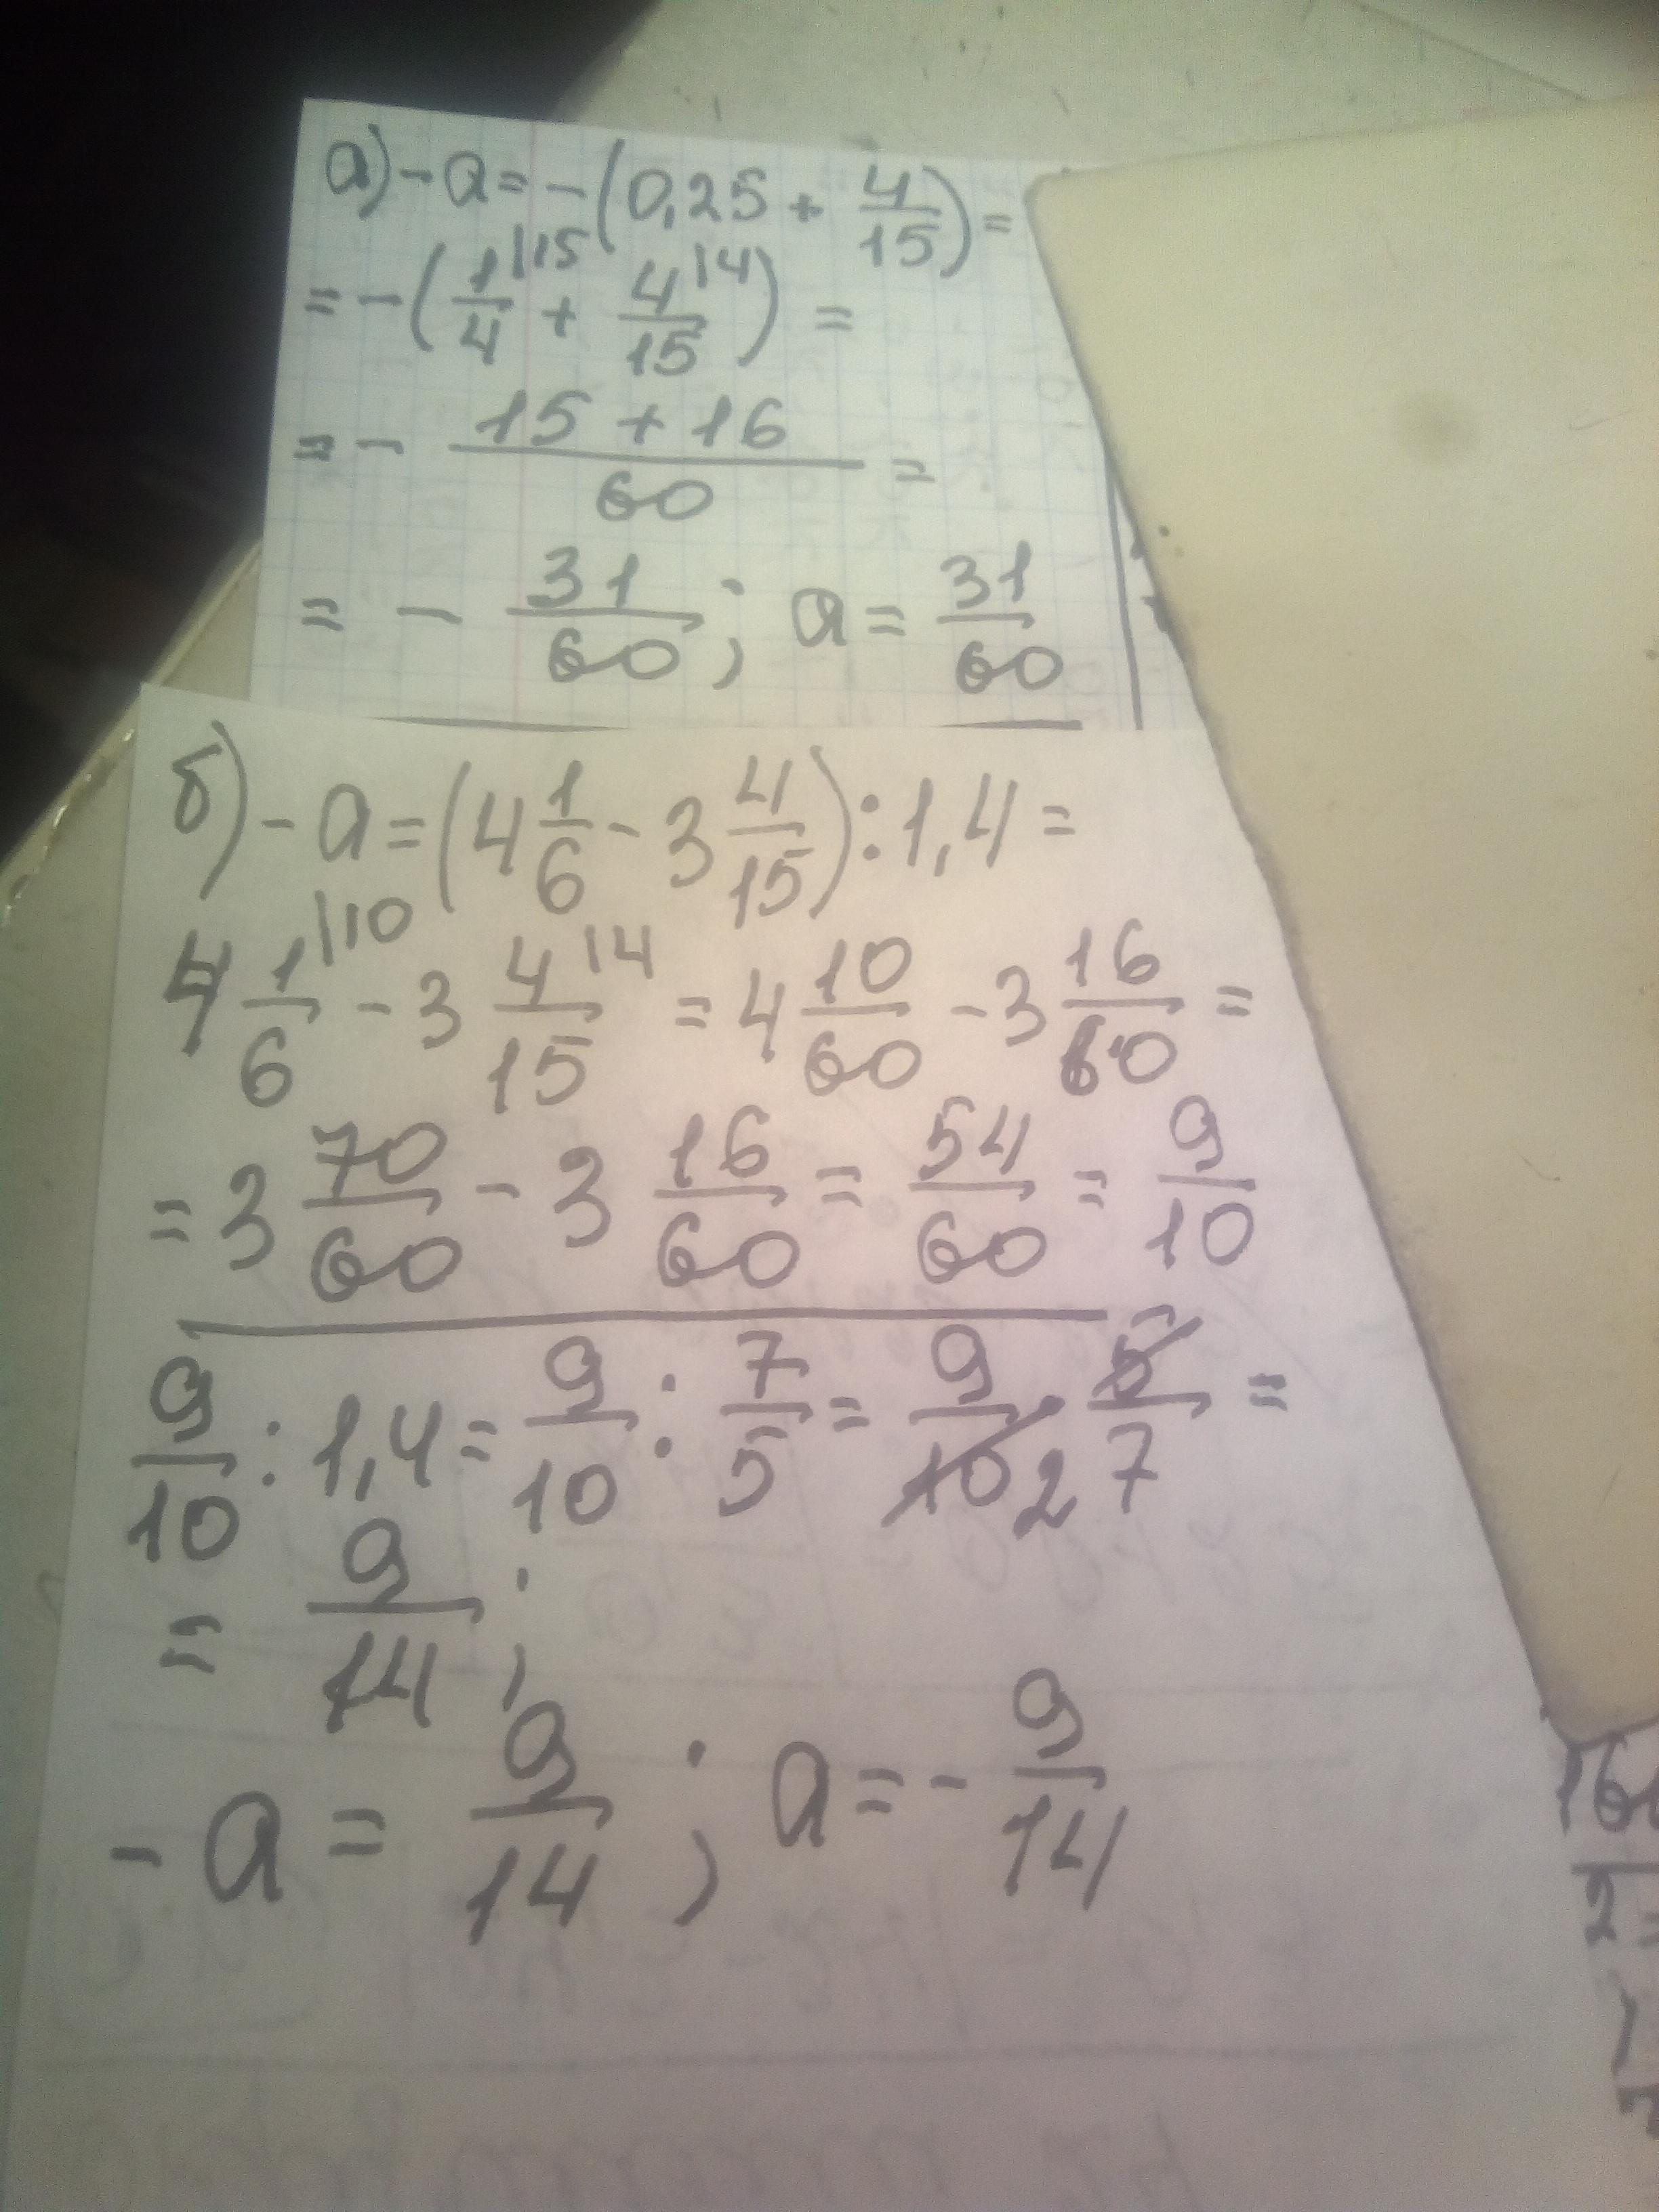 а) -a = -(0,25 + 4/15) =
= -(1/4|15 + 4/15|4) =
= - (15 + 16)/60 =
= - 31/60; a = 31/60
б) -a = (4 1/6 - 3 4/15) : 1,4 =
4 1/6|10 - 3 4/15|4 = 4 10/60 - 3 16/60 =
= 3 70/60 - 3 16/60 = 54/60 = 9/10
9/10 : 1,4 = 9/10 : 7/5 = 9/10 2 · 5/7 =
= 9/14;
-a = 9/14; a = - 9/14
16
2 =